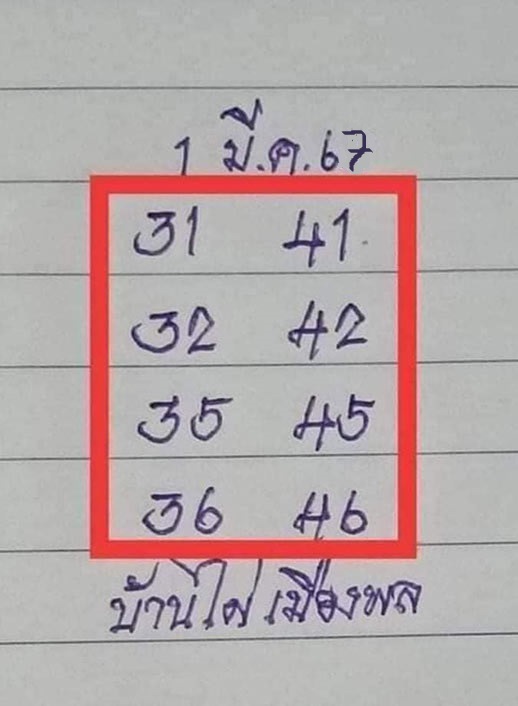 1 มี.ค.67
31 41
32 42
35 45
36 46
บ้านไผ่ เมืองพล